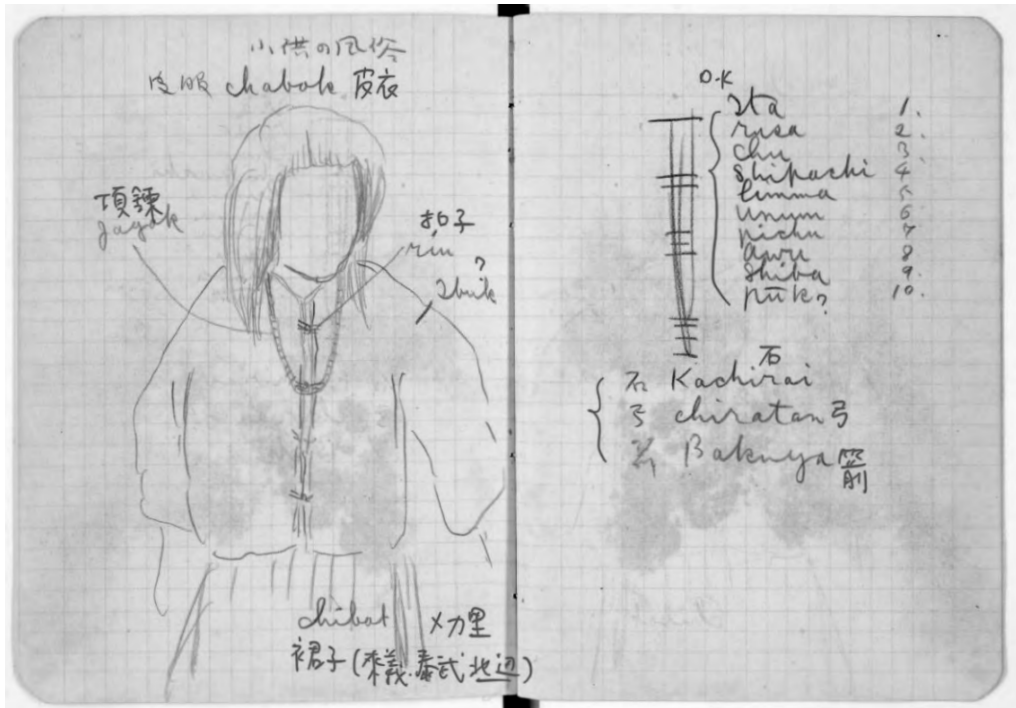 小供の風俗
皮服 chabok 皮衣
項鍊
jagak
扣子
riu
?
Ibuk
chibat メカ里
裙子(來義·泰武·北辺)
O.K
Ita 1.
rusa 2.
chu 3.
shipachi 4
limma 5
unum 6
pichu 7
awu 8
shiba 9.
pūk? 10.
石
石 Kachirai
弓 chiratan 弓
Bakuya 箭